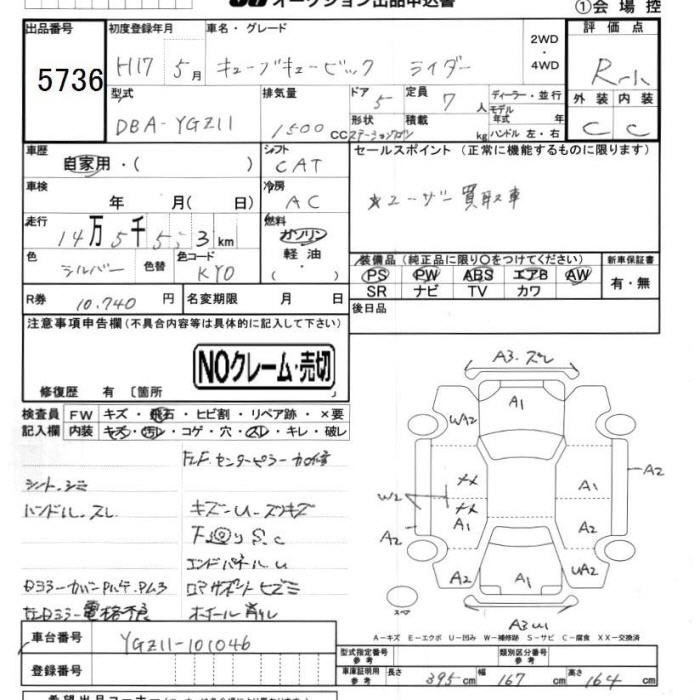 オークション出品申込書
①会場控
出品番号 初度登録年月 車名・グレード 2WD・4WD 評価点
5736 H17 5月 キューブキュービック ライダー R-小
型式 排気量 ドア 定員 ディーラー・並行 外装 内装
DBA-YGZ11 1500cc 5 7人 モデル年式 年 C C
形状 積載 kg ハンドル 左・右
ステーションワゴン
車歴 シフト セールスポイント (正常に機能するものに限ります)
自家用・( ) CAT
車検 冷房 ユーザー買取車
年 月( 日) AC
走行 燃料
14万5千 3km ガソリン
軽油
( )
色 色替 色コード
シルバー KY0
装備品 (純正品に限り○をつけてください) 新車保証書
PS PW ABS エアB AW 有・無
SR ナビ TV カワ
R券 10.740円 名変期限 月 日 後日品
注意事項申告欄 (不具合内容等は具体的に記入して下さい)
NOクレーム・売切
修復歴 有 〔箇所 〕
検査員 FW キズ・飛石・ヒビ割・リペア跡・×要
記入欄 内装 キズ・汚レ・コゲ・穴・スレ・キレ・破レ
センターピラー
シート・シミ
ハンドル.スレ キズ-U-スリキズ
下回りS.C
エンドパネルU
ホイール削レ
A3.ズレ
A1
WA2
A2
メメ A1
W2
メメ
A1 A2
A2
A2 A1 UA2
スペア
A3
A-キズ E-エクボ U-凹み W-補修跡 S-サビ C-腐食 XX-交換済
車台番号 YGZ11-101046
登録番号
型式指定番号 参考 類別区分番号 参考
車庫証明用 参考 長さ 395cm 幅 167cm 高さ 164cm
希望出品コーナー